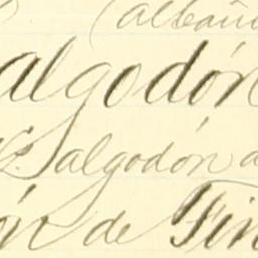 (albañ
algodón
algodón d
ón de Fin